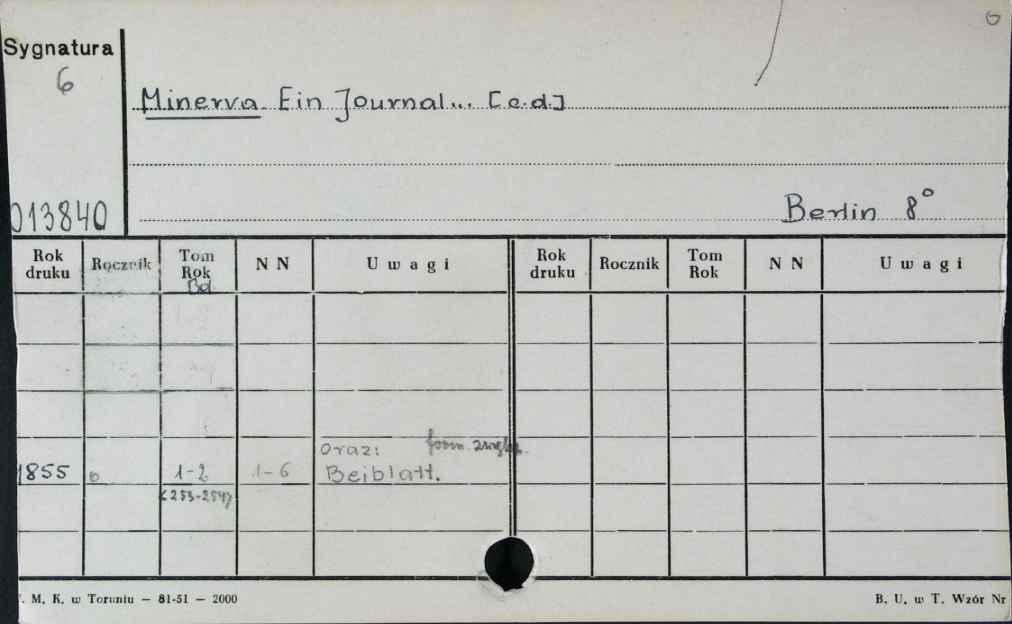 6
Sygnatura
6
Minerva. Ein Journal... [c.d.]
013840
Berlin 8°
Rok druku Rocznik Tom Rok Bd N N Uwagi Rok druku Rocznik Tom Rok N N Uwagi
oraz: form.
1855 o 1-2 1-6 Beiblatt.
<253-254>
. M. K. w Toruniu — 81-51 — 2000
B. U. w T. Wzór Nr